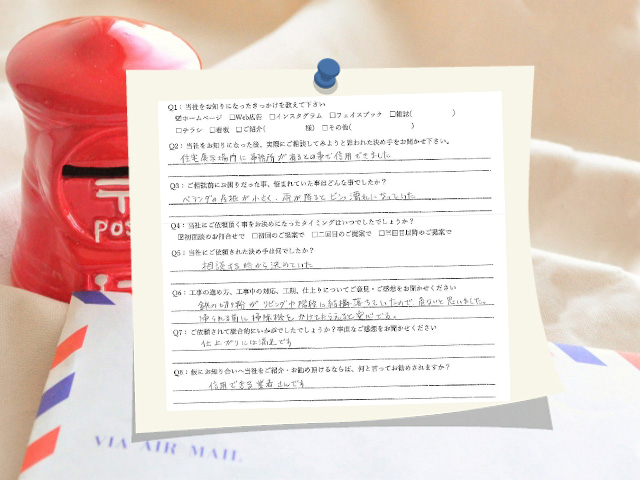 Q1：当社をお知りになったきっかけを教えて下さい
☑ホームページ　□Web広告　□インスタグラム　□フェイスブック　□雑誌(　　　)
□チラシ　□看板　□ご紹介(　　　様)　□その他(　　　)
Q2：当社をお知りになった後、実際にご相談してみようと思われた決め手をお聞かせ下さい。
住宅展示場内に事務所が有るとの事で信用できました
Q3：ご相談前にお困りだった事、悩まれていた事はどんな事でしたか？
ベランダの屋根が小さく、雨が降るとビショ濡れになっていた
Q4：当社にご依頼頂く事をお決めになったタイミングはいつでしたでしょうか？
☑初回面談のお問合せで　□初回のご提案で　□二回目のご提案で　□三回目以降のご提案で
Q5：当社にご依頼された決め手は何でしたか？
相談する時から決めていた
Q6：工事の進め方、工事中の対応、工期、仕上りについてご意見・ご感想をお聞かせください
鉄の切粉がリビングや階段に結構落ちていたので、危ないと思いました。
帰られる前に掃除機をかけてもらえると安心です。
Q7：ご依頼されて総合的にいかがでしたでしょうか？率直なご感想をお聞かせください
仕上がりには満足です
Q8：仮にお知り合いへ当社をご紹介・お勧め頂けるならば、何と言ってお勧めされますか？
信用できる業者さんです
POS
VIA AIR MAIL